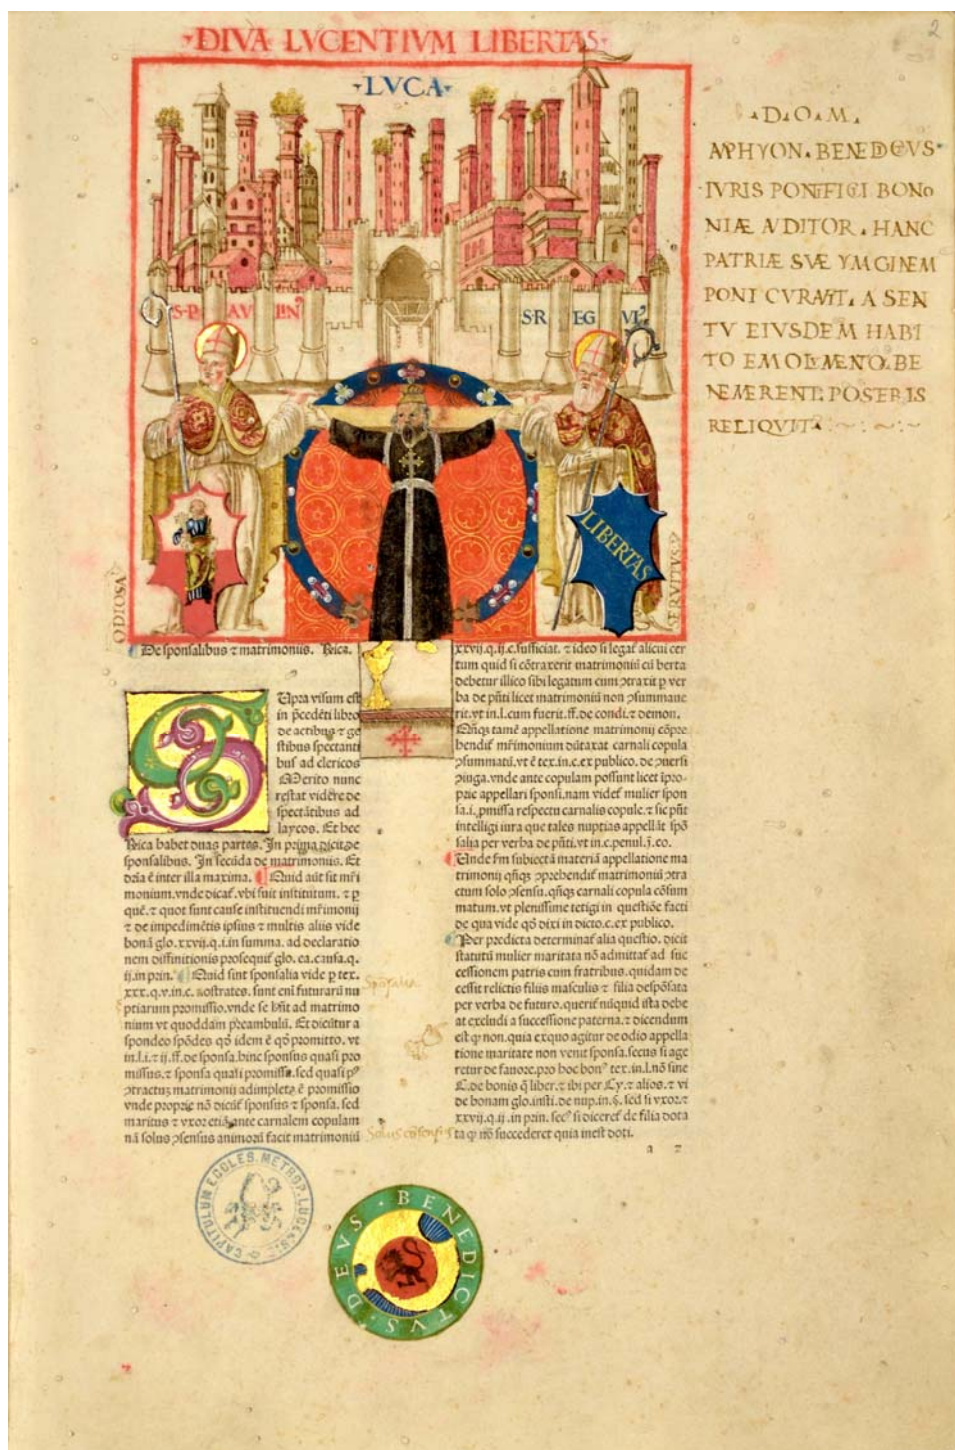 2
·DIVA LVCENTIVM LIBERTAS·
·LVCA·
S·P AV LIN
S·R EG VL
ODIOSA
SERVITVS
LIBERTAS
·D·O·M·
IVRIS PONTIFICI BONO
NIÆ AVDITOR. HANC
PATRIÆ SVÆ YMGINEM
PONI CVRAVIT. A SEN
TV EIVSDEM HABI
TO EMOLVMENTO. BE
NEMERENT. POSTERIS
RELIQVIT
De sponsalibus ⁊ matrimoniis. Rica.
SUpra visum est
in p̄cedēti libro
de actibus ⁊ ge
stibus spectanti
bus ad clericos
Merito nunc
restat videre de
spectātibus ad
laycos. Et hec
Rica habet duas partes. In prima dicit de
sponsalibus. In secūda de matrimoniis. Et
dr̄ia ē inter illa maxima. Quid aūt sit mr̄i
monium. vnde dicat̄. vbi fuit institutum. ⁊ ꝑ
quē. ⁊ quot sunt cause instituendi mr̄imonij
⁊ de impedimētis ipsius ⁊ multis aliis vide
bonā glo. xxvij. q. i. in summa. ad declaratio
nem diffinitionis prosequit̄ glo. ea. causa. q.
ij. in prin. Quid sint sponsalia vide ꝑ tex.
xxx. q. v. in c. nostrates. sunt eni futurarū nu
ptiarum promissio. vnde se hn̄t ad matrimo
nium vt quoddam preambulū. Et dicūtur a
spondeo spōdes qō idem ē qō promitto. vt
in l. i. ⁊ ij. ff. de sponsa. hinc sponsus quasi pro
missus. ⁊ sponsa quasi promissa. sed quasi ꝑ
ↄtractus matrimonii adimplet̄ ē promissio
vnde proprie nō dicūt̄ sponsus ⁊ sponsa. sed
maritus ⁊ vxor etiā ante carnalem copulam
nā solus ↄsensus animorū facit matrimoniū
xxvij. q. ij. c. sufficiat. ⁊ ideo si legat̄ alicui cer
tum quid si cōtraxerit matrimoniū cū berta
debetur illico sibi legatum cum ↄtraxit ꝑ ver
ba de pn̄ti licet matrimoniū non ↄsummaue
rit. vt in. l. cum fuerit. ff. de condi. ⁊ demon.
Qn̄qꝫ tamē appellatione matrimonij cōpre
hendit̄ mr̄imonium dūtaxat carnali copula
ↄsummatū. vt ē tex. in. c. ex publico. de ↄuersi
ↄiuga. vnde ante copulam possunt licet īpro
prie appellari sponsi. nam videt̄ mulier spon
sa. i. ꝓmissa respectu carnalis copule. ⁊ sic pn̄t
intelligi iura que tales nuptias appellāt spō
salia per verba de pn̄ti. vt in c. penul. j. eo.
Unde fm subiectā materiā appellatione ma
trimonij qn̄qꝫ ↄprehendit̄ matrimoniū ↄtra
ctum solo ↄsensu. qn̄qꝫ carnali copula cōsum
matum. vt plenissime tetigi in questiōe facti
de qua vide qō dixi in dicto. c. ex publico.
Per predicta determinat̄ alia questio. dicit
statutū mulier maritata nō admittat̄ ad suc
cessionem patris cum fratribus. quidam de
cessit relictis filiis masculis ⁊ filia despōsata
per verba de futuro. querit̄ nūquid ista debe
at excludi a successione paterna. ⁊ dicendum
est ꝙ non. quia exquo agitur de odio appella
tione maritate non venit sponsa. secus si age
retur de fauore. pro hoc bonꝰ tex. in. l. nō sine
C. de bonis q̄ liber. ⁊ ibi per Cy. ⁊ alios. ⁊ vi
de bonam glo. insti. de nup. in. §. sed si vxor. ⁊
xxvij. q. ij. in prin. secꝰ si diceret̄ de filia dota
ta ꝙ nō succederet quia inest doti.
Sponsalia
Solus cōsensus
a 2
CAPITULUM ECCLES. METROP. LUCENSIS
·BENEDICTVS·DEVS